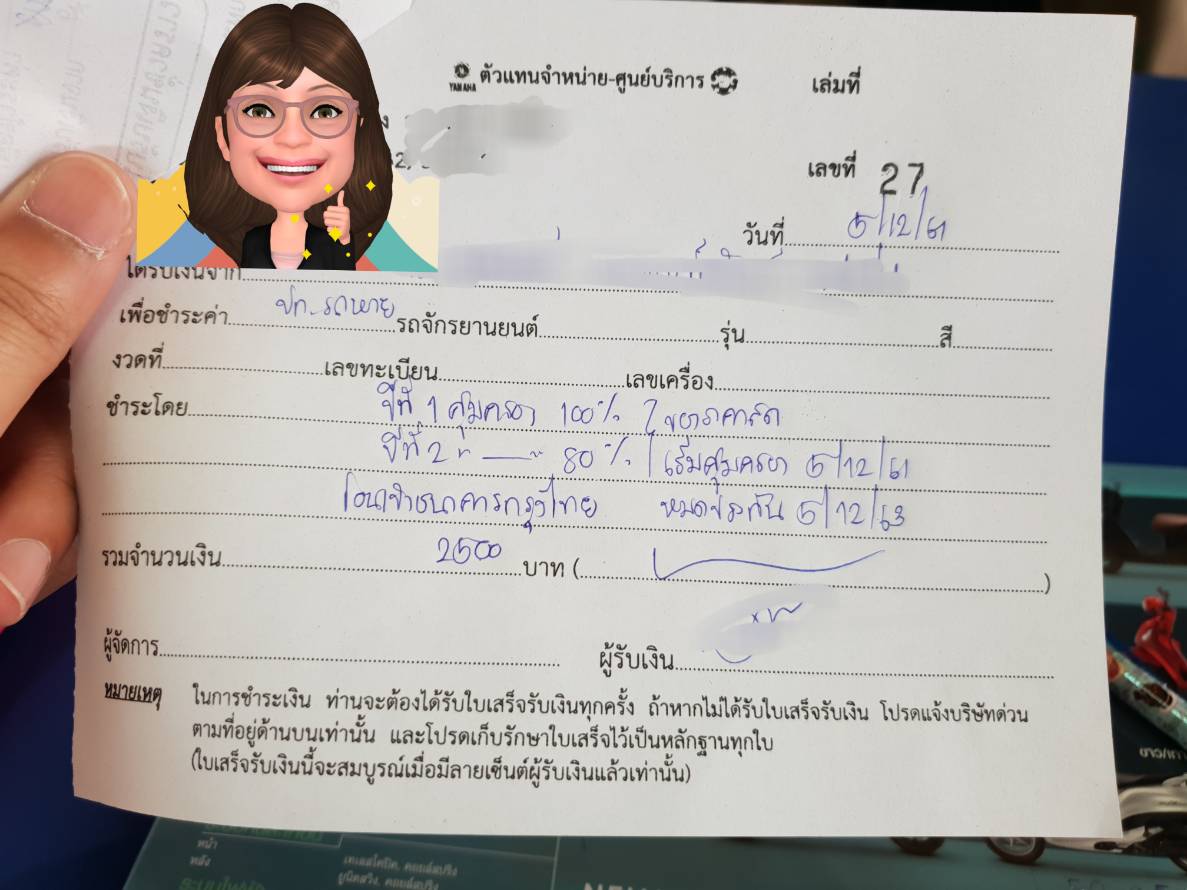 YAMAHA ตัวแทนจำหน่าย-ศูนย์บริการ เล่มที่
เลขที่ 27
วันที่ 5/12/61
ได้รับเงินจาก
เพื่อชำระค่า ปก.รถหาย รถจักรยานยนต์ รุ่น สี
งวดที่ เลขทะเบียน เลขเครื่อง
ชำระโดย ปีที่ 1 คุ้มครอง 100%
ปีที่ 2 " — " 80% เริ่มคุ้มครอง 5/12/61
โอนเข้าธนาคารกรุงไทย หมดประกัน 5/12/63
รวมจำนวนเงิน 2500 บาท ( )
ผู้จัดการ ผู้รับเงิน
หมายเหตุ ในการชำระเงิน ท่านจะต้องได้รับใบเสร็จรับเงินทุกครั้ง ถ้าหากไม่ได้รับใบเสร็จรับเงิน โปรดแจ้งบริษัทด่วน
ตามที่อยู่ด้านบนเท่านั้น และโปรดเก็บรักษาใบเสร็จไว้เป็นหลักฐานทุกใบ
(ใบเสร็จรับเงินนี้จะสมบูรณ์เมื่อมีลายเซ็นต์ผู้รับเงินแล้วเท่านั้น)
หน้า
หลัง
เทเลสโคปิค, คอยล์สปริง
ยูนิตสวิง, คอยล์สปริง